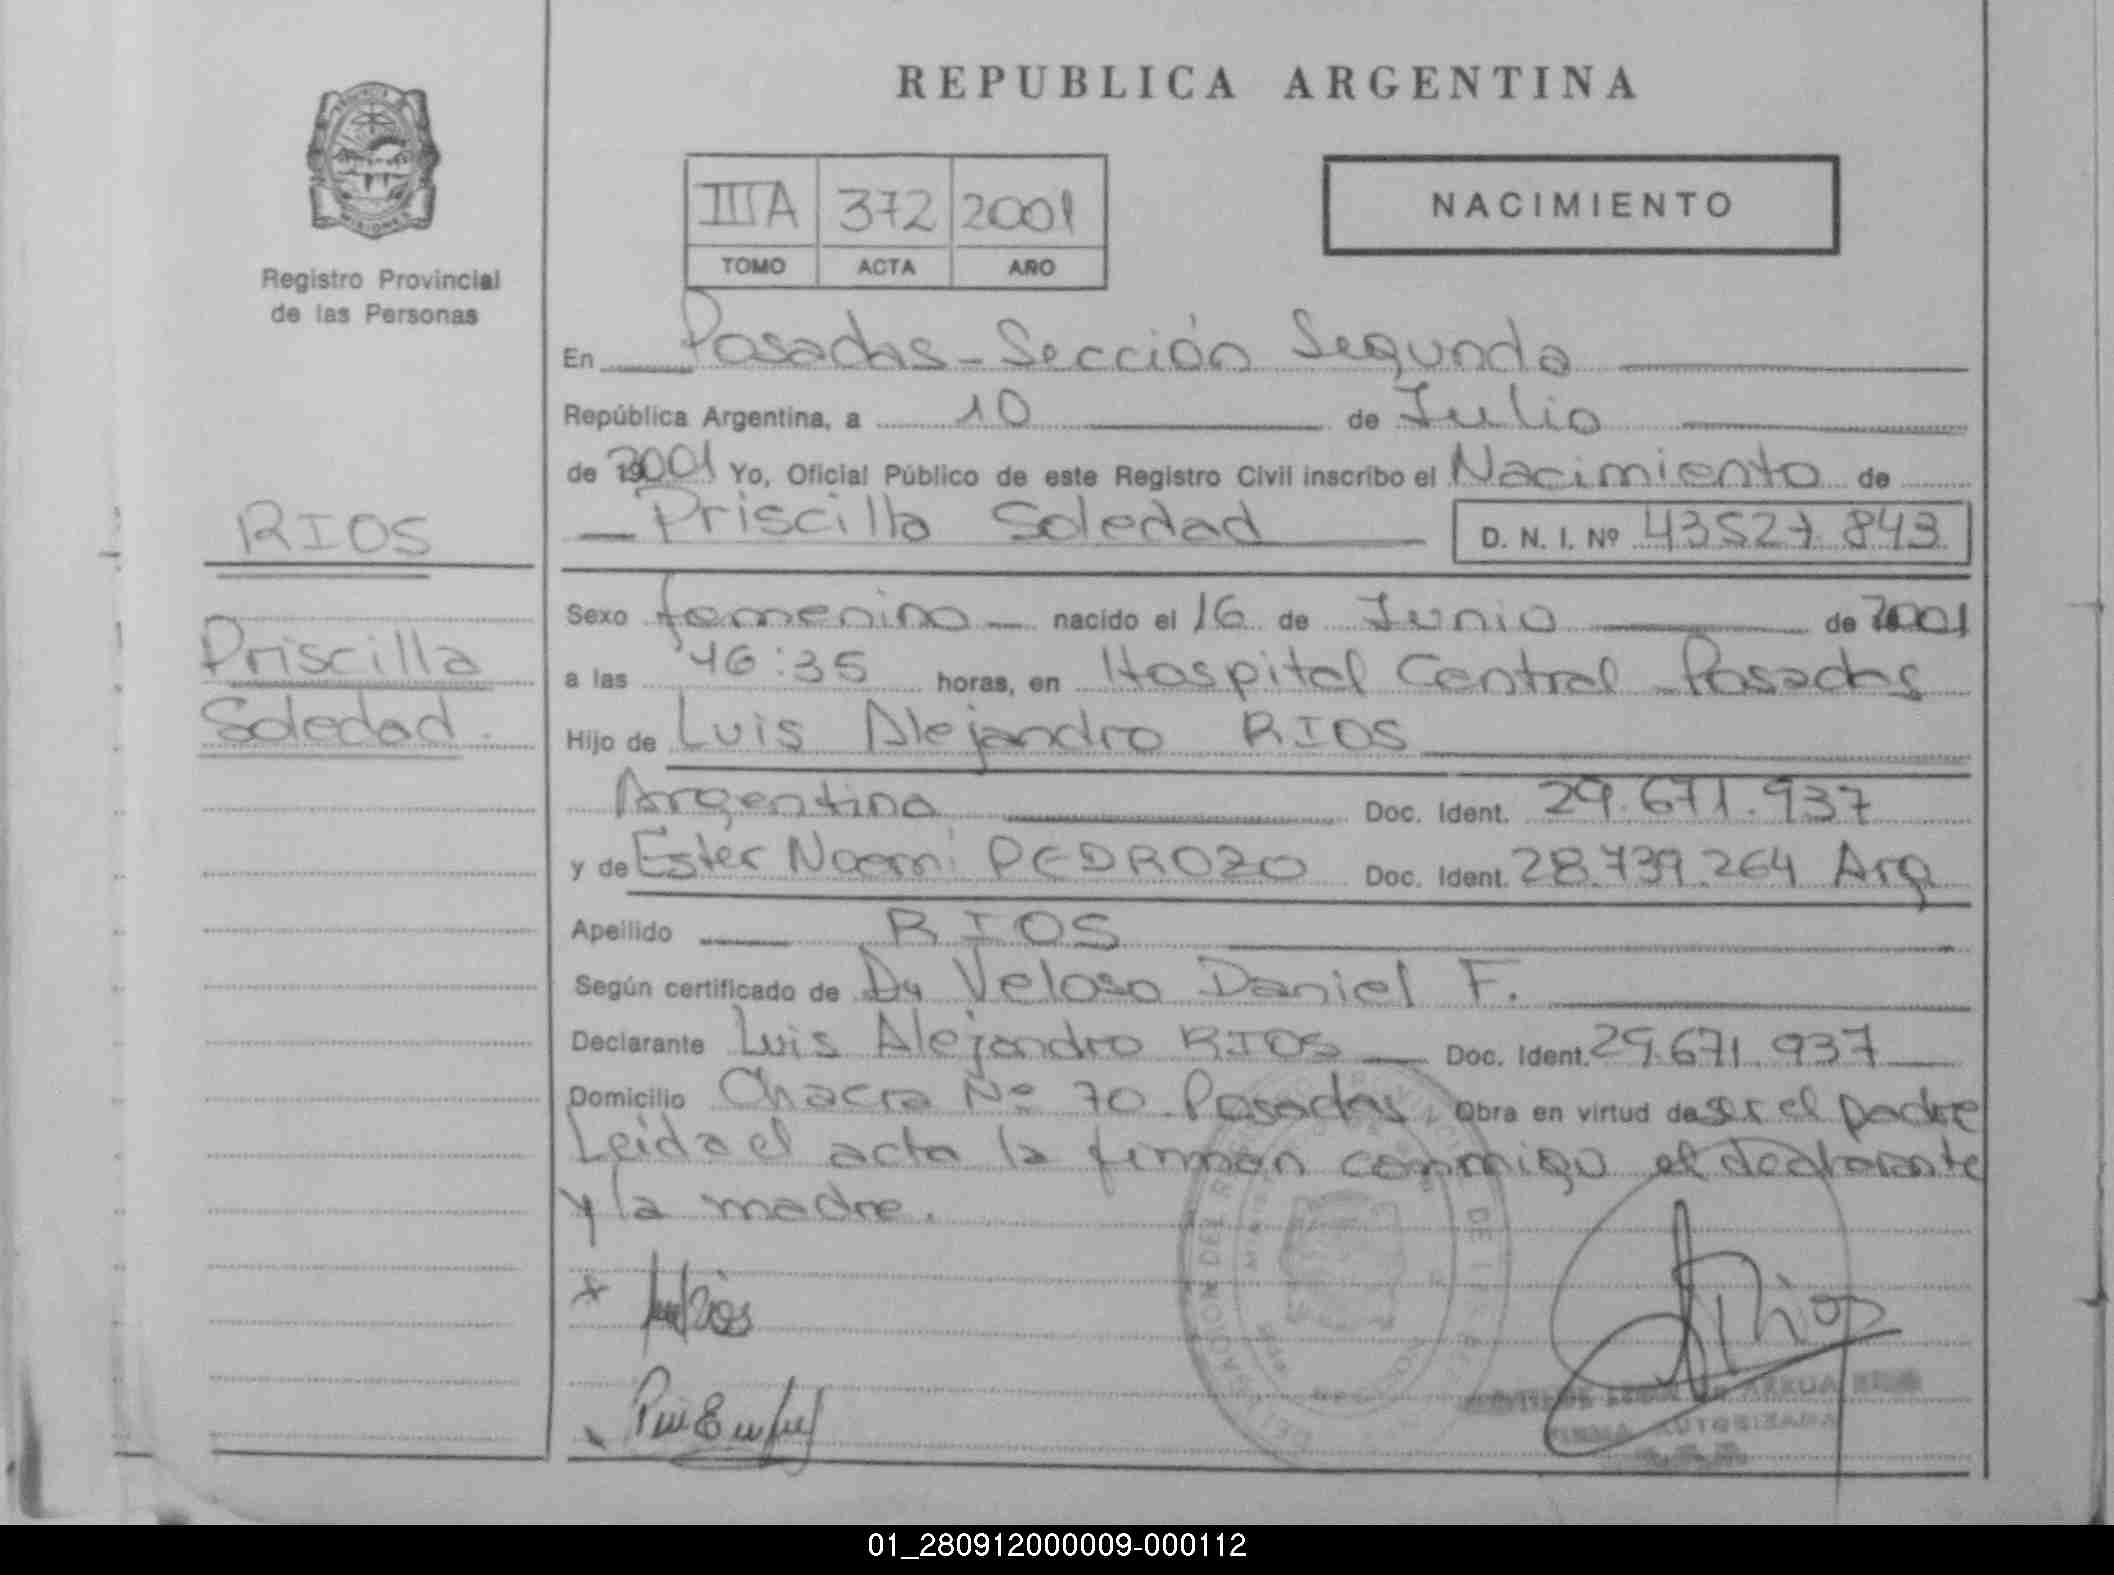 REPUBLICA ARGENTINA
PROVINCIA DE
MISIONES
Registro Provincial
de las Personas
IIIA 372 2001
TOMO ACTA AÑO
NACIMIENTO
En Posadas - Sección Segunda
República Argentina, a 10 de Julio
de 2001 Yo, Oficial Público de este Registro Civil inscribo el Nacimiento de
Priscilla Soledad D. N. I. Nº 43527.843
RIOS
Priscilla
Soledad.
Sexo femenino nacido el 16 de Junio de 2001
a las 16:35 horas, en Hospital Central Posadas
Hijo de Luis Alejandro RIOS
Argentino Doc. Ident. 29.671.937
y de Ester Noemi PEDROZO Doc. Ident. 28.739.264 Arg
Apellido RIOS
Según certificado de Dr Veloso Daniel F.
Declarante Luis Alejandro RIOS Doc. Ident. 29.671.937
Domicilio Chacra Nº 70 Posadas Obra en virtud de ser el padre
Leida el acta la firman conmigo el declarante
y la madre.
FIRMA AUTORIZADA
01_280912000009-000112